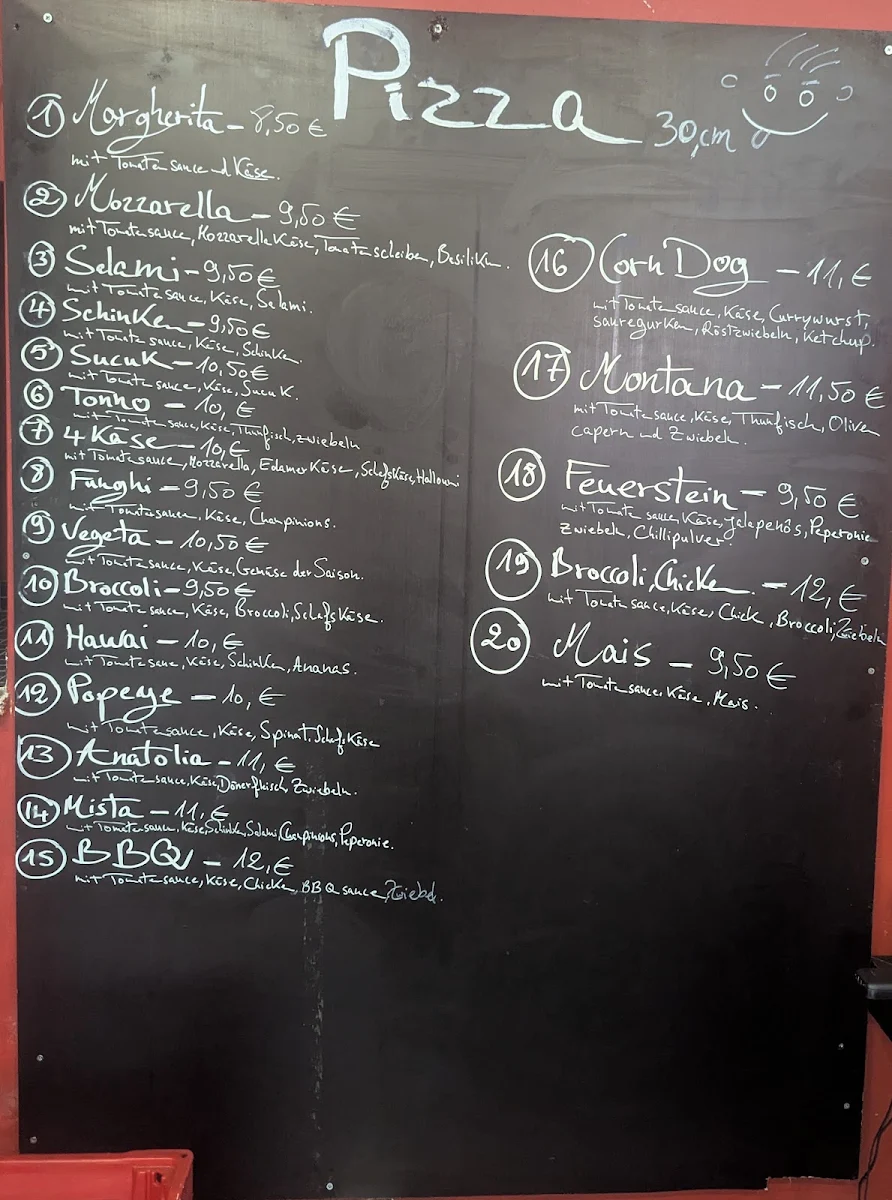 Pizza 30,cm
1 Margherita - 8,50 €
mit Tomatensauce und Käse.
2 Mozzarella - 9,50 €
mit Tomatensauce, Mozzarella Käse, Tomatenscheiben, Basiliken.
3 Salami - 9,50 €
mit Tomatensauce, Käse, Salami.
4 Schinken - 9,50 €
mit Tomatensauce, Käse, Schinken.
5 Sucuk - 10,50 €
mit Tomatensauce, Käse, Sucuk.
6 Tonno - 10,€
mit Tomatensauce, Käse, Thunfisch, zwiebeln
7 4 Käse - 10,€
mit Tomatensauce, Mozzarella, Edamer Käse, Schafskäse, Halloumi
8 Funghi - 9,50 €
mit Tomatensauce, Käse, Champinions.
9 Vegeta - 10,50 €
mit Tomatensauce, Käse, Gemüse der Saison.
10 Broccoli - 9,50 €
mit Tomatensauce, Käse, Broccoli, Schafskäse.
11 Hawai - 10,€
mit Tomatensauce, Käse, Schinken, Ananas.
12 Popeye - 10,€
mit Tomatensauce, Käse, Spinat, Schafskäse
13 Anatolia - 11,€
mit Tomatensauce, Käse, Dönerfleisch, Zwiebeln.
14 Mista - 11,€
mit Tomatensauce, Käse, Schinken, Salami, Champinions, Peperonie.
15 BBQ - 12,€
mit Tomatensauce, Käse, Chicken, BBQ sauce, Zwiebel.
16 Corn Dog - 11,€
mit Tomatensauce, Käse, Currywurst,
sauregurken, Röstzwiebeln, Ketchup.
17 Montana - 11,50 €
mit Tomatensauce, Käse, Thunfisch, Oliven
capern und Zwiebeln.
18 Feuerstein - 9,50 €
mit Tomatensauce, Käse, Jalapenôs, Peperonie
Zwiebeln, Chillipulver.
19 Broccoli, Chicken - 12,€
mit Tomatensauce, Käse, Chick, Broccoli, Zwiebeln
20 Mais - 9,50 €
mit Tomatensauce, Käse, Mais.